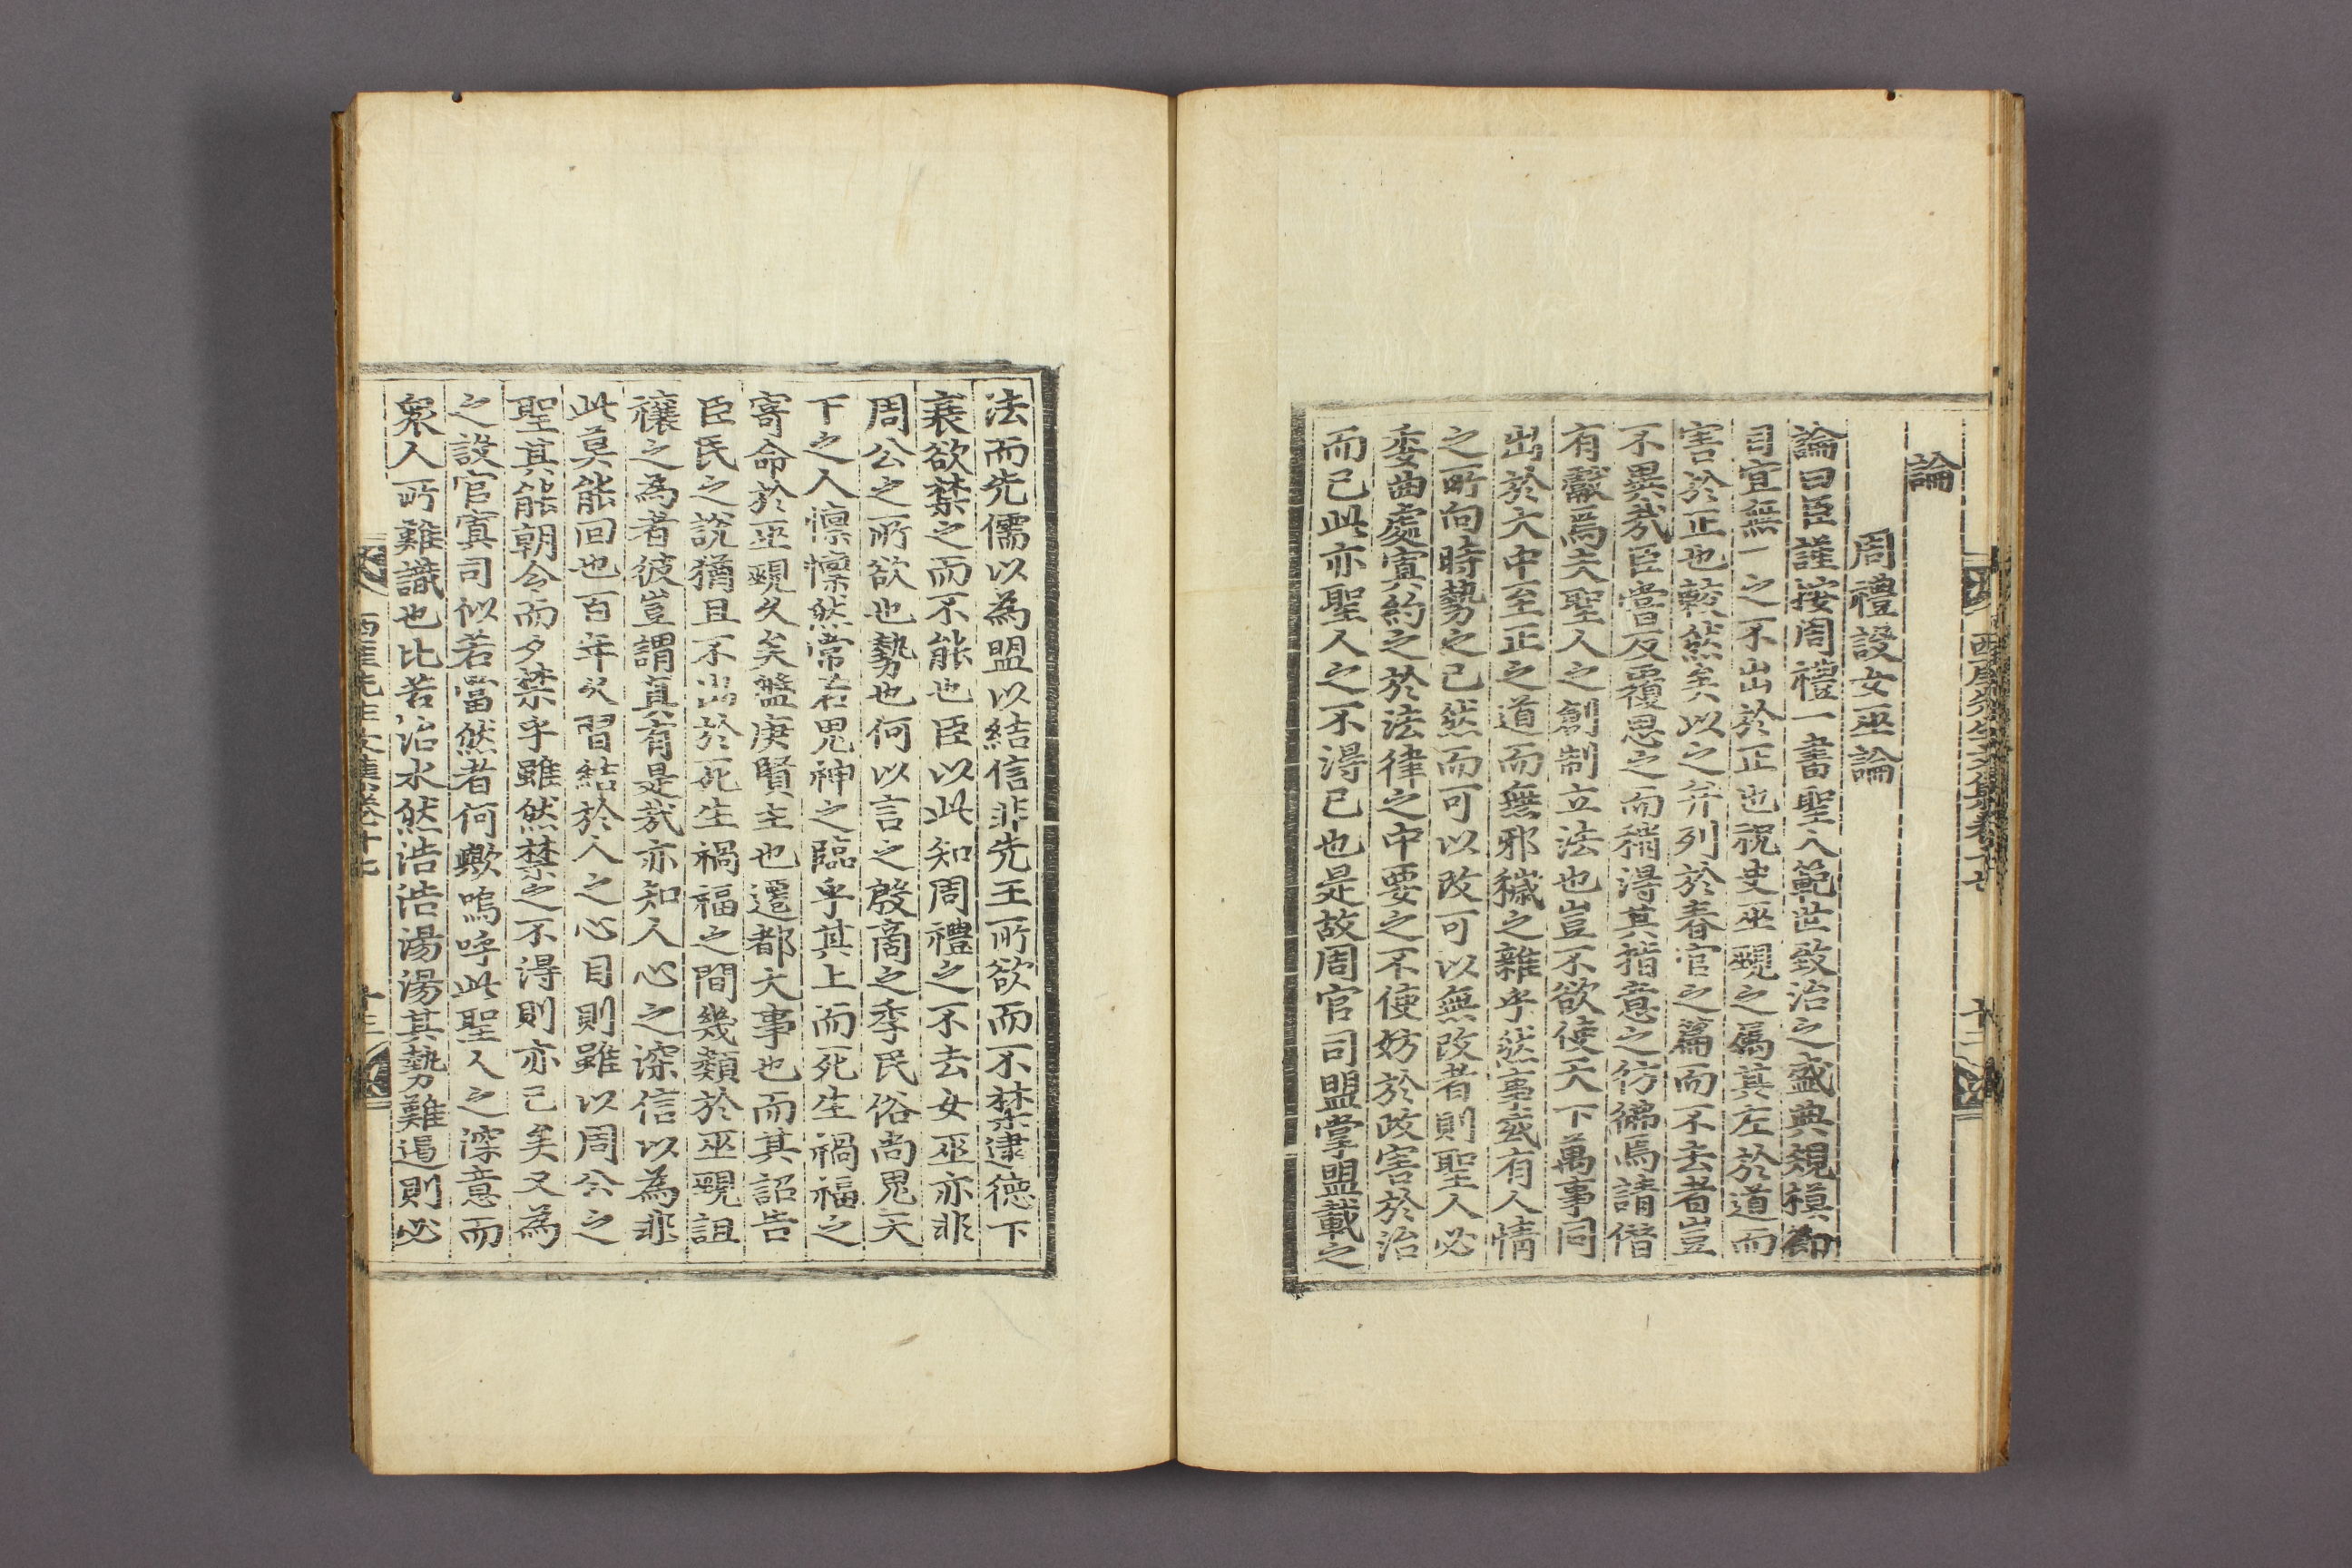 西厓先生文集卷十七
十二
論
周禮設女巫論
論曰臣謹按周禮一書聖人範世致治之盛典規模節
目宜無一之不出於正也祝史巫覡之屬其左於道而
害於正也較然矣以之弁列於春官之篇而不去者豈
不異哉臣嘗反覆思之而稍得其指意之彷彿焉請偕
有辭焉夫聖人之創制立法也豈不欲使天下萬事同
出於大中至正之道而無邪穢之雜乎然事或有人情
之所向時勢之已然而可以改可以無改者則聖人必
委曲處寘約之於法律之中要之不使妨於政害於治
而已此亦聖人之不得已也是故周官司盟掌盟載之
法而先儒以為盟以結信非先王所欲而不禁逮德下
衰欲禁之而不能也臣以此知周禮之不去女巫亦非
周公之所欲也勢也何以言之殷商之季民俗尚鬼天
下之人懍懍然常若鬼神之臨乎其上而死生禍福之
寄命於巫覡久矣盤庚賢主也遷都大事也而其詔告
臣民之說猶且不出於死生禍福之間幾類於巫覡詛
禳之為者彼豈謂真有是哉亦知人心之深信以為非
此莫能回也百年久習結於人之心目則雖以周公之
聖其能朝令而夕禁乎雖然禁之不得則亦已矣又為
之設官寘司似若當然者何歟嗚呼此聖人之深意而
衆人所難識也比若治水然浩浩湯湯其勢難遏則必
西厓先生文集卷十七
十三